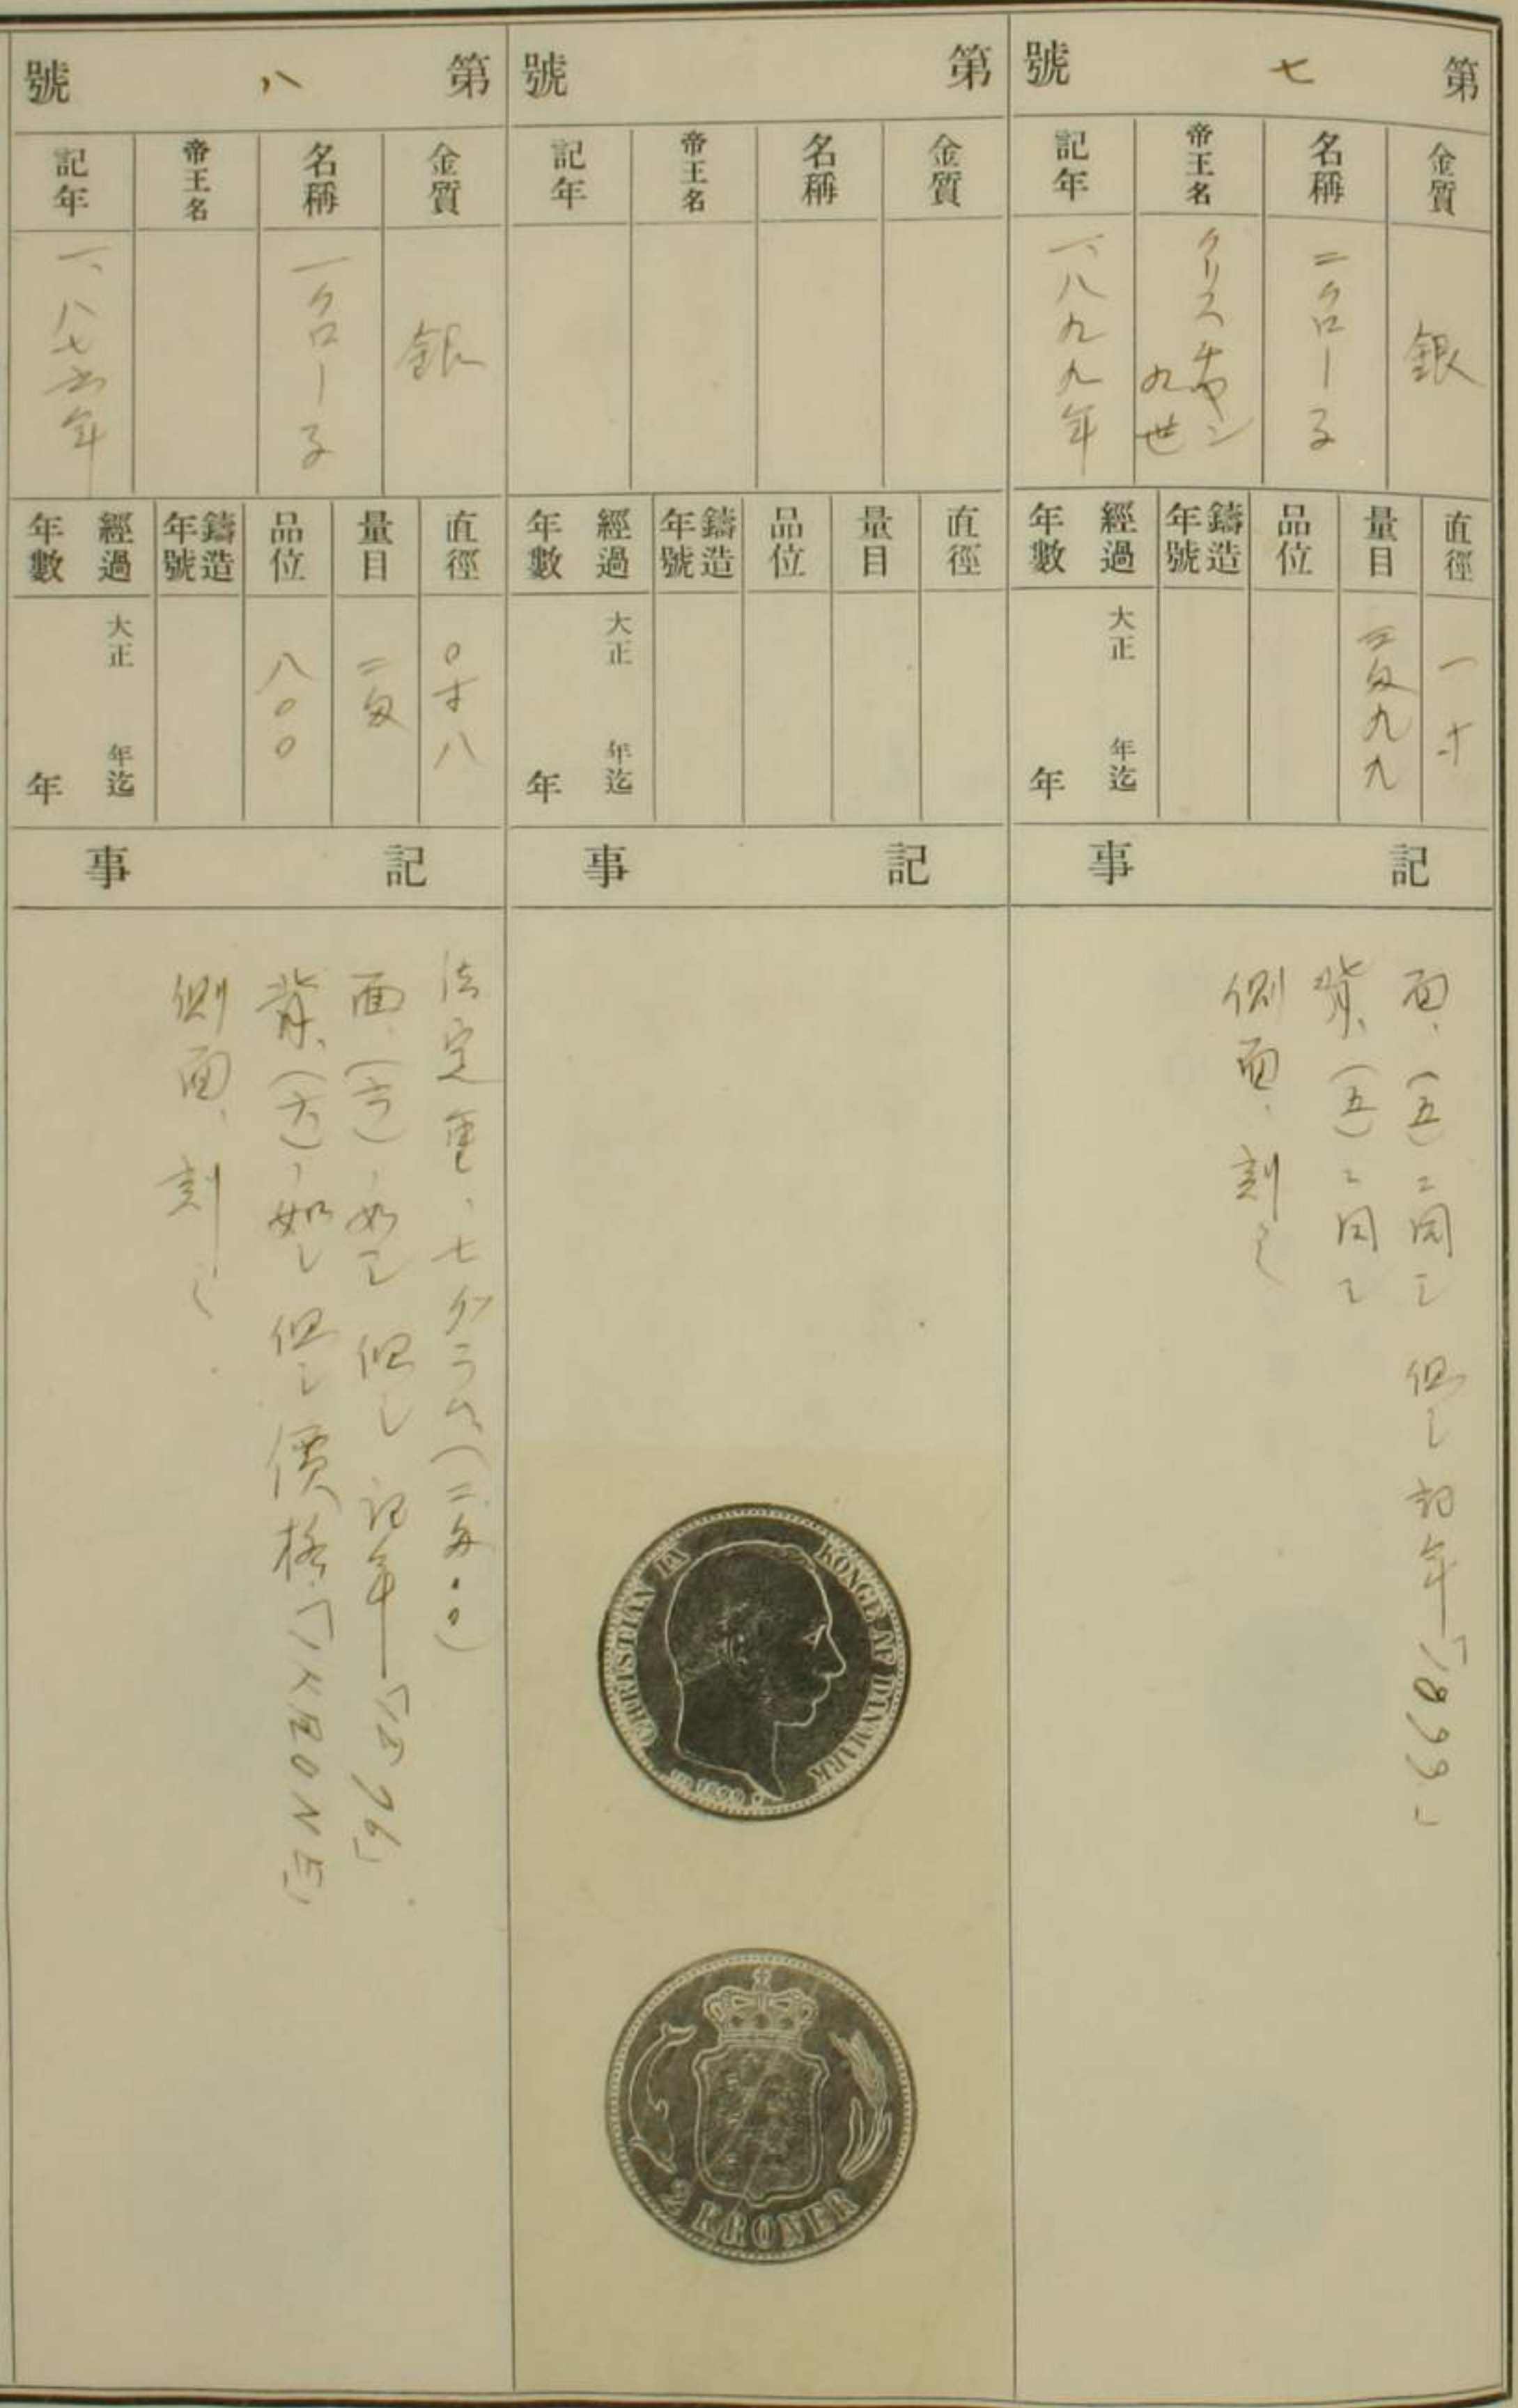 第七號
金質
銀
名稱
二クローネ
帝王名
クリスチャン
九世
記年
一、八九九年
直徑
一寸
量目
三匁九九
品位
鑄造
年號
經過
年數
大正 年迄
年
記事
面、(五)ニ同シ 但シ記年「1899」
背、(五)ニ同シ
側面、刻ミ
第 號
金質
名稱
帝王名
記年
直徑
量目
品位
鑄造
年號
經過
年數
大正 年迄
年
記事
CHRISTIAN IX KONGE AF DANMARK
1899
2 KRONER
第八號
金質
銀
名稱
一クローネ
帝王名
記年
一、八七五年
直徑
〇寸八
量目
二匁
品位
八〇〇
鑄造
年號
經過
年數
大正 年迄
年
記事
法定量、七グラム(二匁〇〇)
面、(六)ノ如シ 但シ記年
背、(六)ノ如シ 但シ價格「1 KRONE」
側面、刻ミ